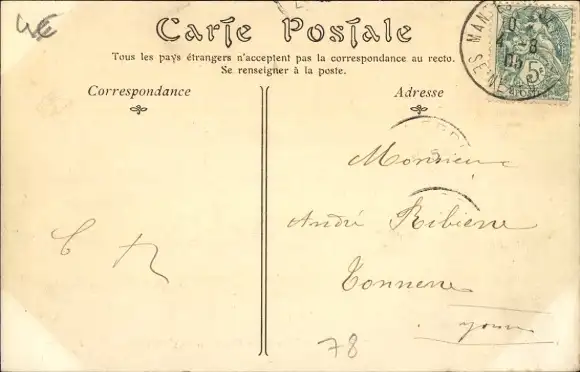 Carte Postale
Tous les pays étrangers n'acceptent pas la correspondance au recto.
Se renseigner à la poste.
Correspondance
Adresse
5
Monsieur
André Ribiere
Tonnerre
Yonne
C R
78